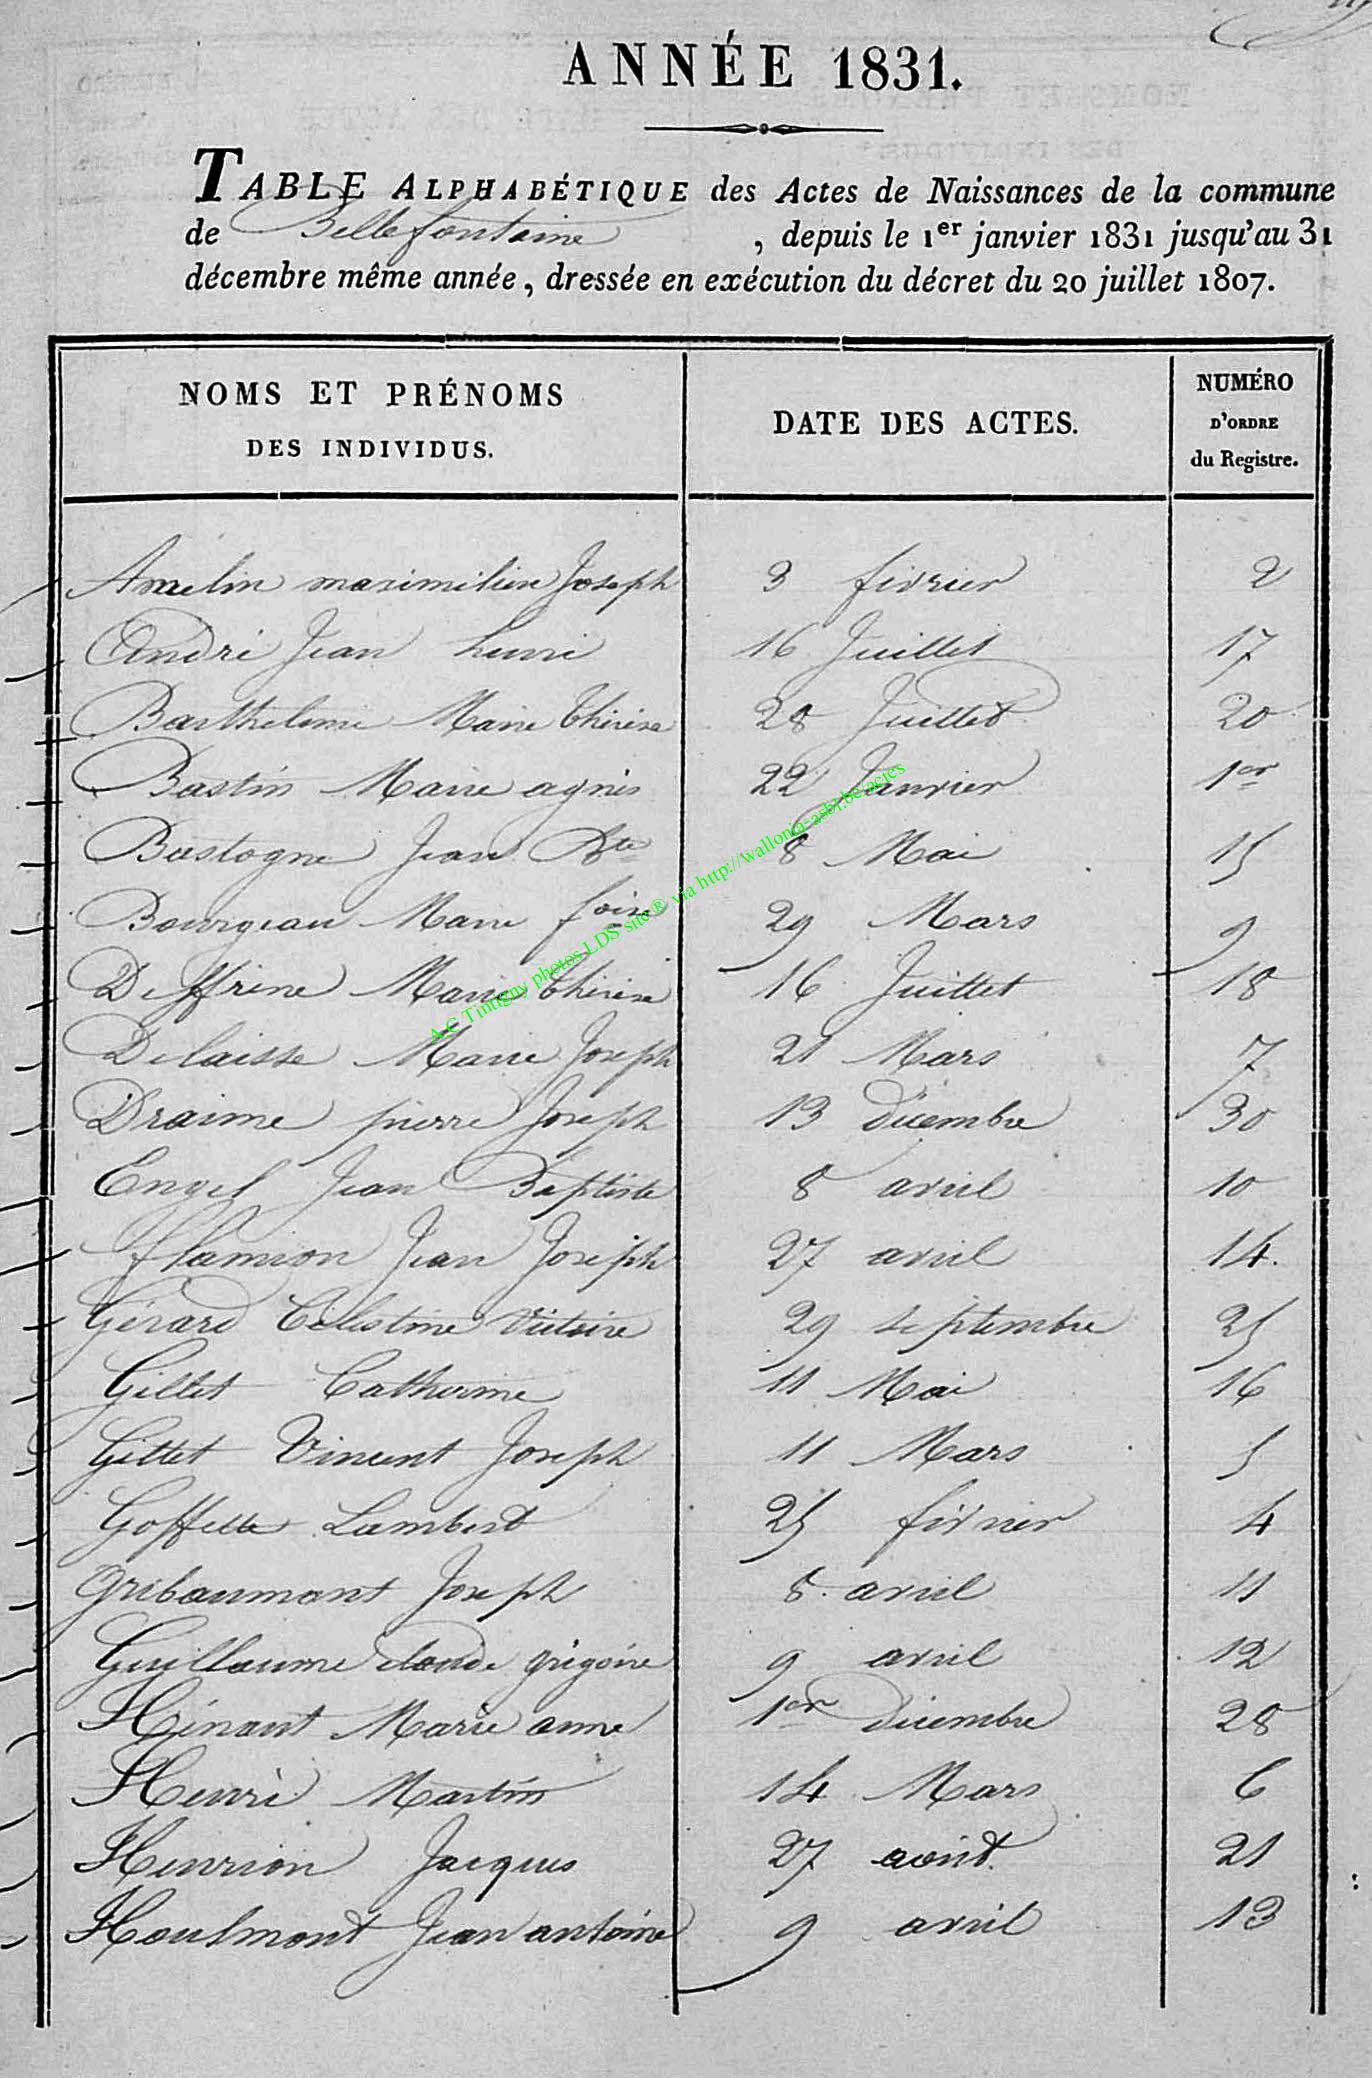 ANNÉE 1831.
TABLE ALPHABÉTIQUE des Actes de Naissances de la commune
de Bellefontaine , depuis le 1er janvier 1831 jusqu'au 31
décembre même année, dressée en exécution du décret du 20 juillet 1807.
NOMS ET PRÉNOMS
DES INDIVIDUS.
DATE DES ACTES.
NUMÉRO
D'ORDRE
du Registre.
maximilien Joseph 3 février 2
André Jean henri 16 Juillet 17
Barthelemi Marie thérèse 28 Juillet 20
Bastin Marie agnès 22 Janvier 1er
Bastogne Jean Bte 8 Mai 15
Bourgeau Marie foise 29 Mars 9
Deffrene Marie thérèse 16 Juillet 18
Delaisse Marie Joseph 21 Mars 7
Draime pierre Joseph 13 décembre 30
Engel Jean Baptiste 8 avril 10
flamion Jean Joseph 27 avril 14.
Gérard Célestine Victoire 29 septembre 25
Gillet Catherine 11 Mai 16
Gillet Vincent Joseph 11 Mars 5
Goffette Lambert 25 février 4
Gribaumont Joseph 8 avril 11
Guillaume claude grégoire 9 avril 12
Hénant Marie anne 1er décembre 28
Henri Martin 14 Mars 6
Henrion Jacques 27 août. 21
Houlmont Jean antoine 9 avril 13
A.C Tintigny photos LDS' site ® via http://wallonia-asbl.be/actes